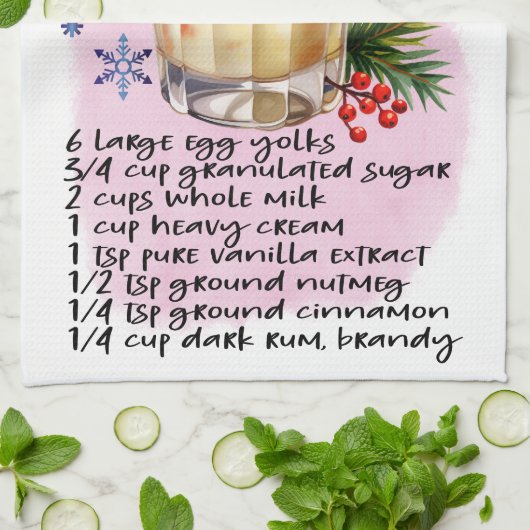 6 Large Egg Yolks
3/4 cup granulated sugar
2 cups whole milk
1 cup heavy cream
1 tsp pure vanilla extract
1/2 tsp ground nutmeg
1/4 tsp ground cinnamon
1/4 cup dark rum, brandy